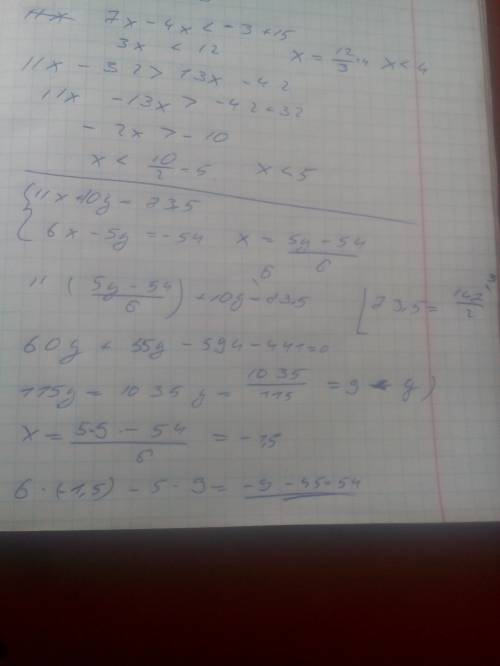 7x - 4x < -3 + 15
3x < 12 x = 12/3 = 4 x < 4
11x - 32 > 13x - 42
11x - 13x > -42 + 32
- 2x > - 10
x < 10/2 = 5 x < 5
{ 11x + 10y = 73.5
6x - 5y = -54 x = (5y - 54)/6
11 ( (5y - 54)/6 ) + 10y = 73.5 [ 73.5 = 147/2
60y + 55y - 594 - 441 = 0
115y = 1035 y = 1035/115 = 9 = y)
x = (5·9 - 54)/6 = -1,5
6 · (-1,5) - 5 · 9 = -9 - 45 = 54